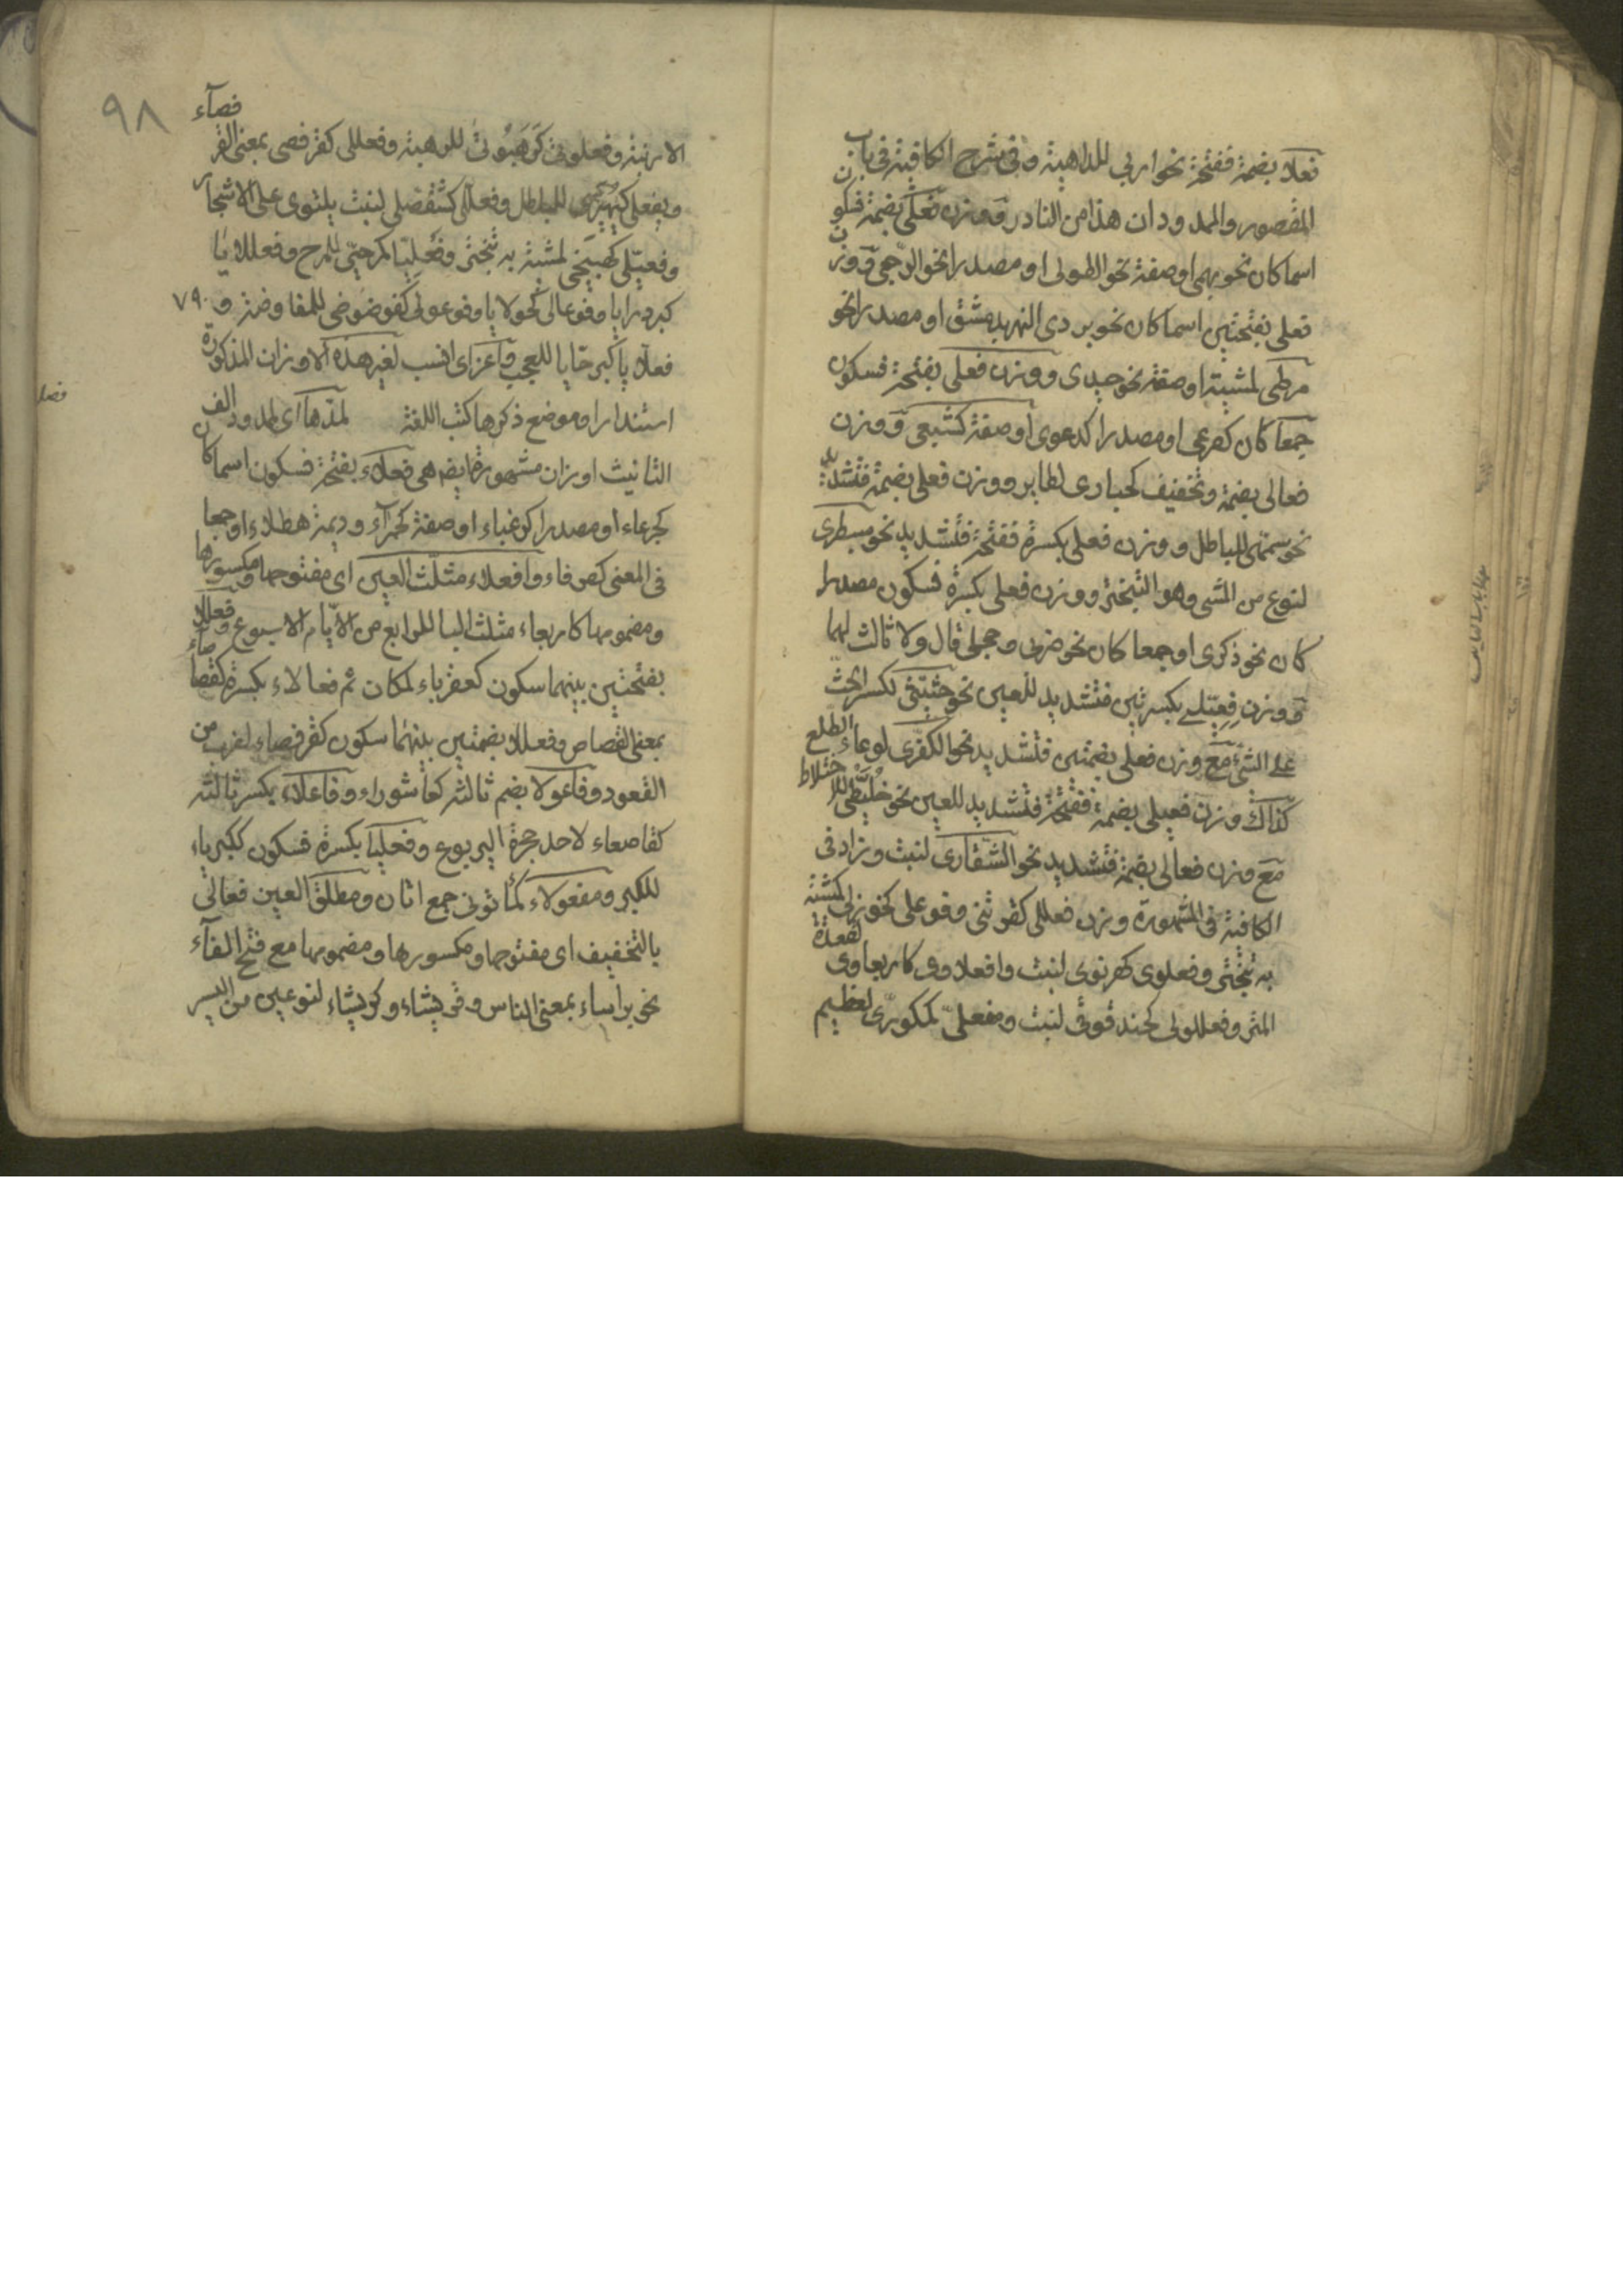 فعلا بضمة ففتحة نحو اربي للداهية وفي شرح الكافية في باب
المقصور والممدود ان هذا من النادر ووزن فعلى بضمة فسكون
اسما كان نحو بهمى او صفة نحو الطولى او مصدرا نحو الرجعى ووزن
فعلى بفتحتين اسما كان نحو بردى النهر بدمشق او مصدرا نحو
مرطى لمشية او صفة نحو حيدى ووزن فعلى بفتحة فسكون
جمعا كان كصرعى او مصدرا كدعوى او صفة كشبعى ووزن
فعالى بضمة وتخفيف كحبارى لطاير ووزن فعلى بضمة فتشديد
نحو سمهى للباطل ووزن فعلى بكسرة ففتحة فتشديد نحو سبطرى
لنوع من المشى وهو التبختر ووزن فعلى بكسرة فسكون مصدرا
كان نحو ذكرى او جمعا كان نحو ضربى وحجلى قال ولا ثالث لهما
ووزن فعيلى بكسرتين فتشديد للعين نحو حثيثى لكسر الحث
على الشئ مع وزن فعلى بضمتين فتشديد نحو الكفرى لوعاء الطلع
كذاك وزن فعيلى بضمة ففتحة فتشديد للعين نحو خليطى للاختلاط
مع وزن فعالى بضمة فتشديد نحو الشقارى لنبت وزاد فى
الكافية فى المشهورة وزن فعللى كقرثنى وفوعلى كخوزلى لمشية
به تبختر وفعلوى كهرنوى لنبت وافعلاوى كاربعاوى لقعدة
المتر وفعللولى كحندقوقى لنبت ومفعلى كمكورى لعظيم
الارنبة وفعلوتى كرهبوتى للرهبة وفعللى كقرفصى بمعنى القرفصآء
ويفعلى كيهيرى للباطل وفعلالى كشقصلى لنبت يلتوى على الاشجار
وفعيلى كهبيخى لمشية به تبختر وفعليا كمرحيا للمرح وفعللايا
كبردرايا وفوعالى كحولايا وفوعولى كفوضوضى للمفاوضة و ٧٩٠
فعلايا كبرحايا للعجب واعز اى انسب لغير هذه الاوزان المذكورة
استندارا وموضع ذكرها كتب اللغة لمدها اى لممدود الف
التانيث اوزان مشهورة ايض هى فعلاء بفتحة فسكون اسما كان
كجرعاء او مصدرا كرغباء او صفة كحمرآء وديمة هطلاء او جمعا
فى المعنى كطرفاء وافعلاء مثلث العين اى مفتوحها ومكسورها
ومضمومها كاربعاء مثلث البا للرابع من الايام الاسبوع وفعللا
بفتحتين بينهما سكون كعقرباء لمكان ثم فعالاء بكسرة كقصاصآء
بمعنى القصاص وفعللا بضمتين بينهما سكون كقرفصاء لضرب من
القعود وفاعولا بضم ثالثه كعاشوراء وفاعلاء بكسر ثالثه
كقاصعاء لاحد جحرة اليربوع وفعليا بكسرة فسكون ككبرياء
للكبر ومفعولاء كمأتونى جمع اتان ومطلق العين فعالى
بالتخفيف اى مفتوحها ومكسورها ومضمومها مع فتح الفآء
نحو براساء بمعنى الناس وقريثاء وكريثاء لنوعين من البسر
٩٨